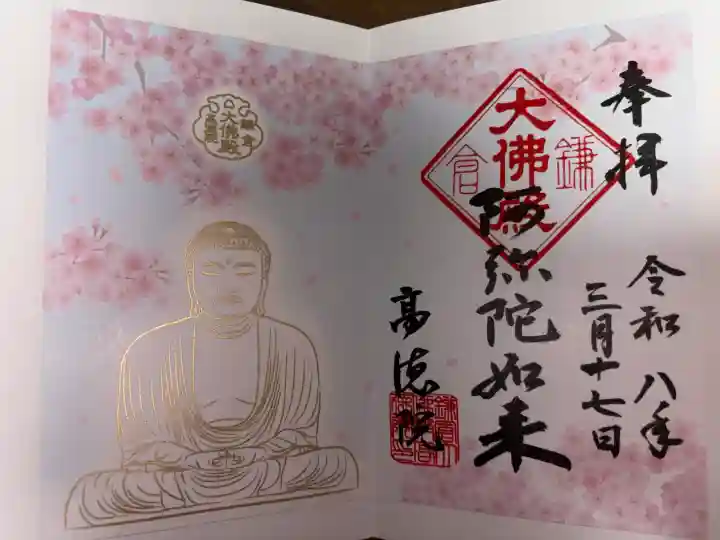 奉拝
令和八年
三月十七日
鎌倉
大佛殿
阿弥陀如来
高徳院
鎌倉
大佛殿
高徳院